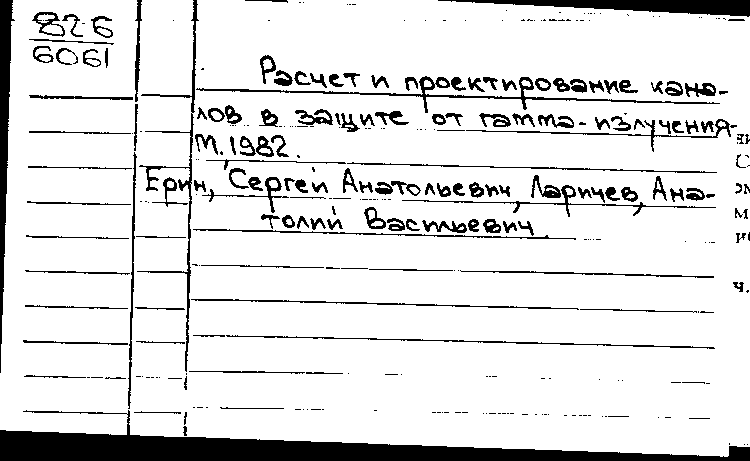 826
6061
Расчет и проектирование кана-
лов в защите от гамма-излучения.
М. 1982.
Ерин, Сергей Анатольевич, Ларичев, Ана-
толий Васильевич